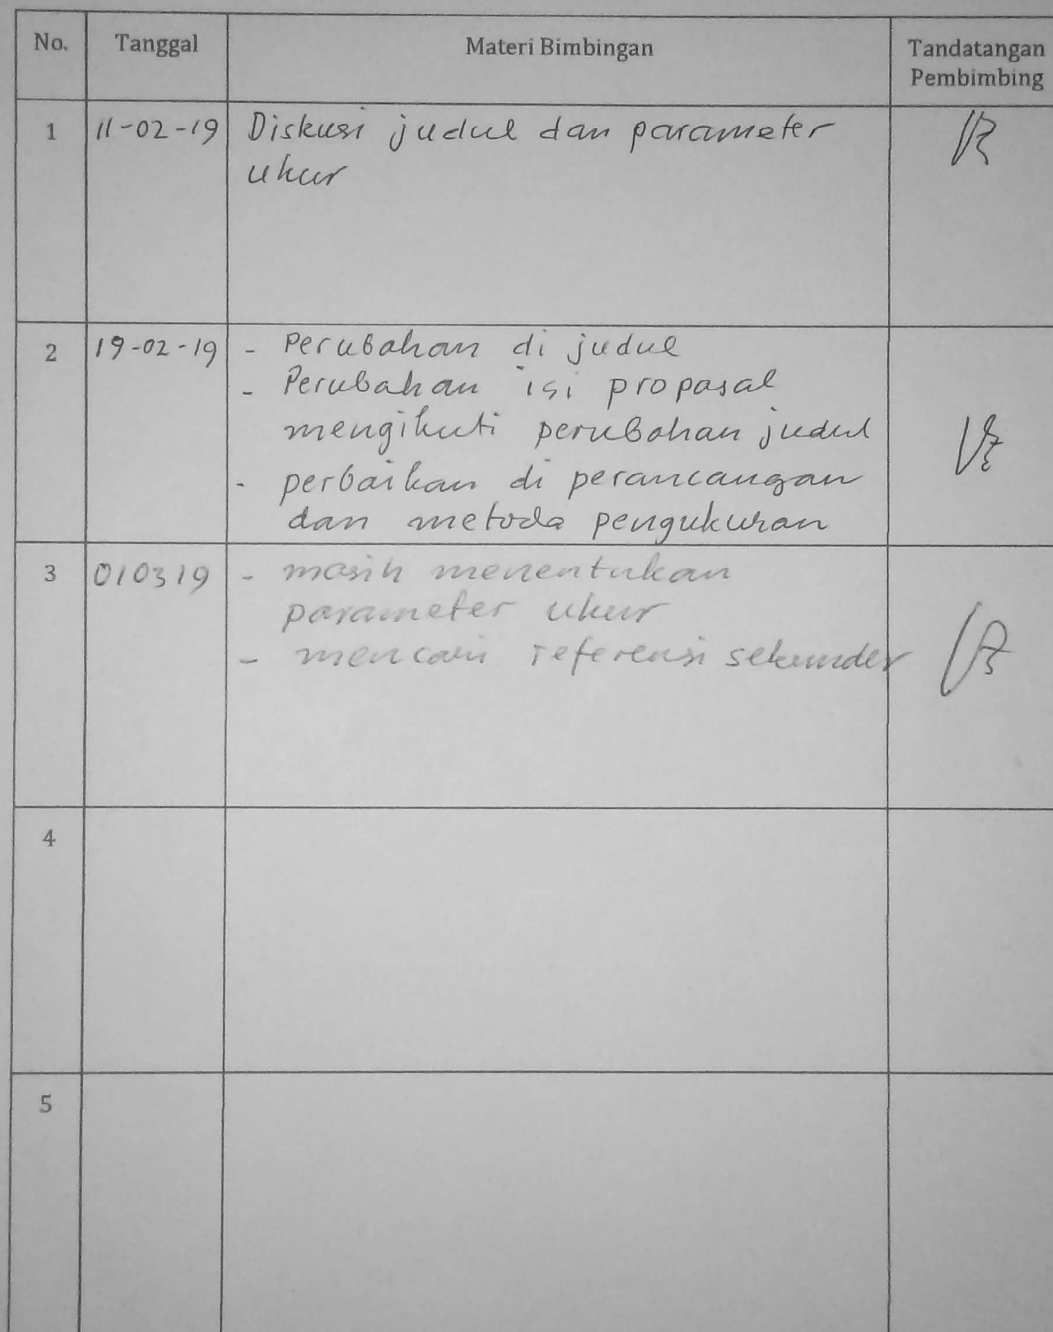 No. Tanggal Materi Bimbingan Tandatangan
Pembimbing
1 11-02-19 Diskusi judul dan parameter
ukur
2 19-02-19 - Perubahan di judul
- Perubahan isi proposal
mengikuti perubahan judul
- perbaikan di perancangan
dan metoda pengukuran
3 010319 - masih menentukan
parameter ukur
- mencari referensi sekunder
4
5